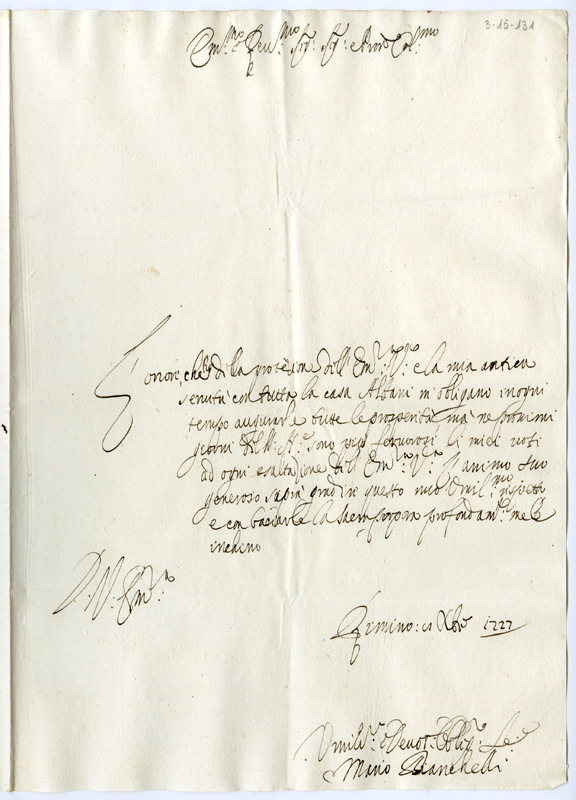 3-15-131
Em.mo e Rev.mo Sig: Sig: e Pron Col:mo
L'onore, che hò della protezione dell Em.za V.ra e la mia antica
servitù con tutta la casa Albani m'obligano in ogni
tempo augurarle tutte le prosperità, mà ne prossimi
giorni del S. N.le sono più fervorosi li miei voti
ad ogni esaltazione dell Em.za V.ra L'animo suo
generoso sapia gradire questo mio Umil.mo rispetto
e con baciarle la Sacra porpora profondam.te me le
inchino
D. V. Em.za
Rimino: Xbre 1727
Umilis.mo Devot: Oblig.mo Se.re
Mario Bianchelli